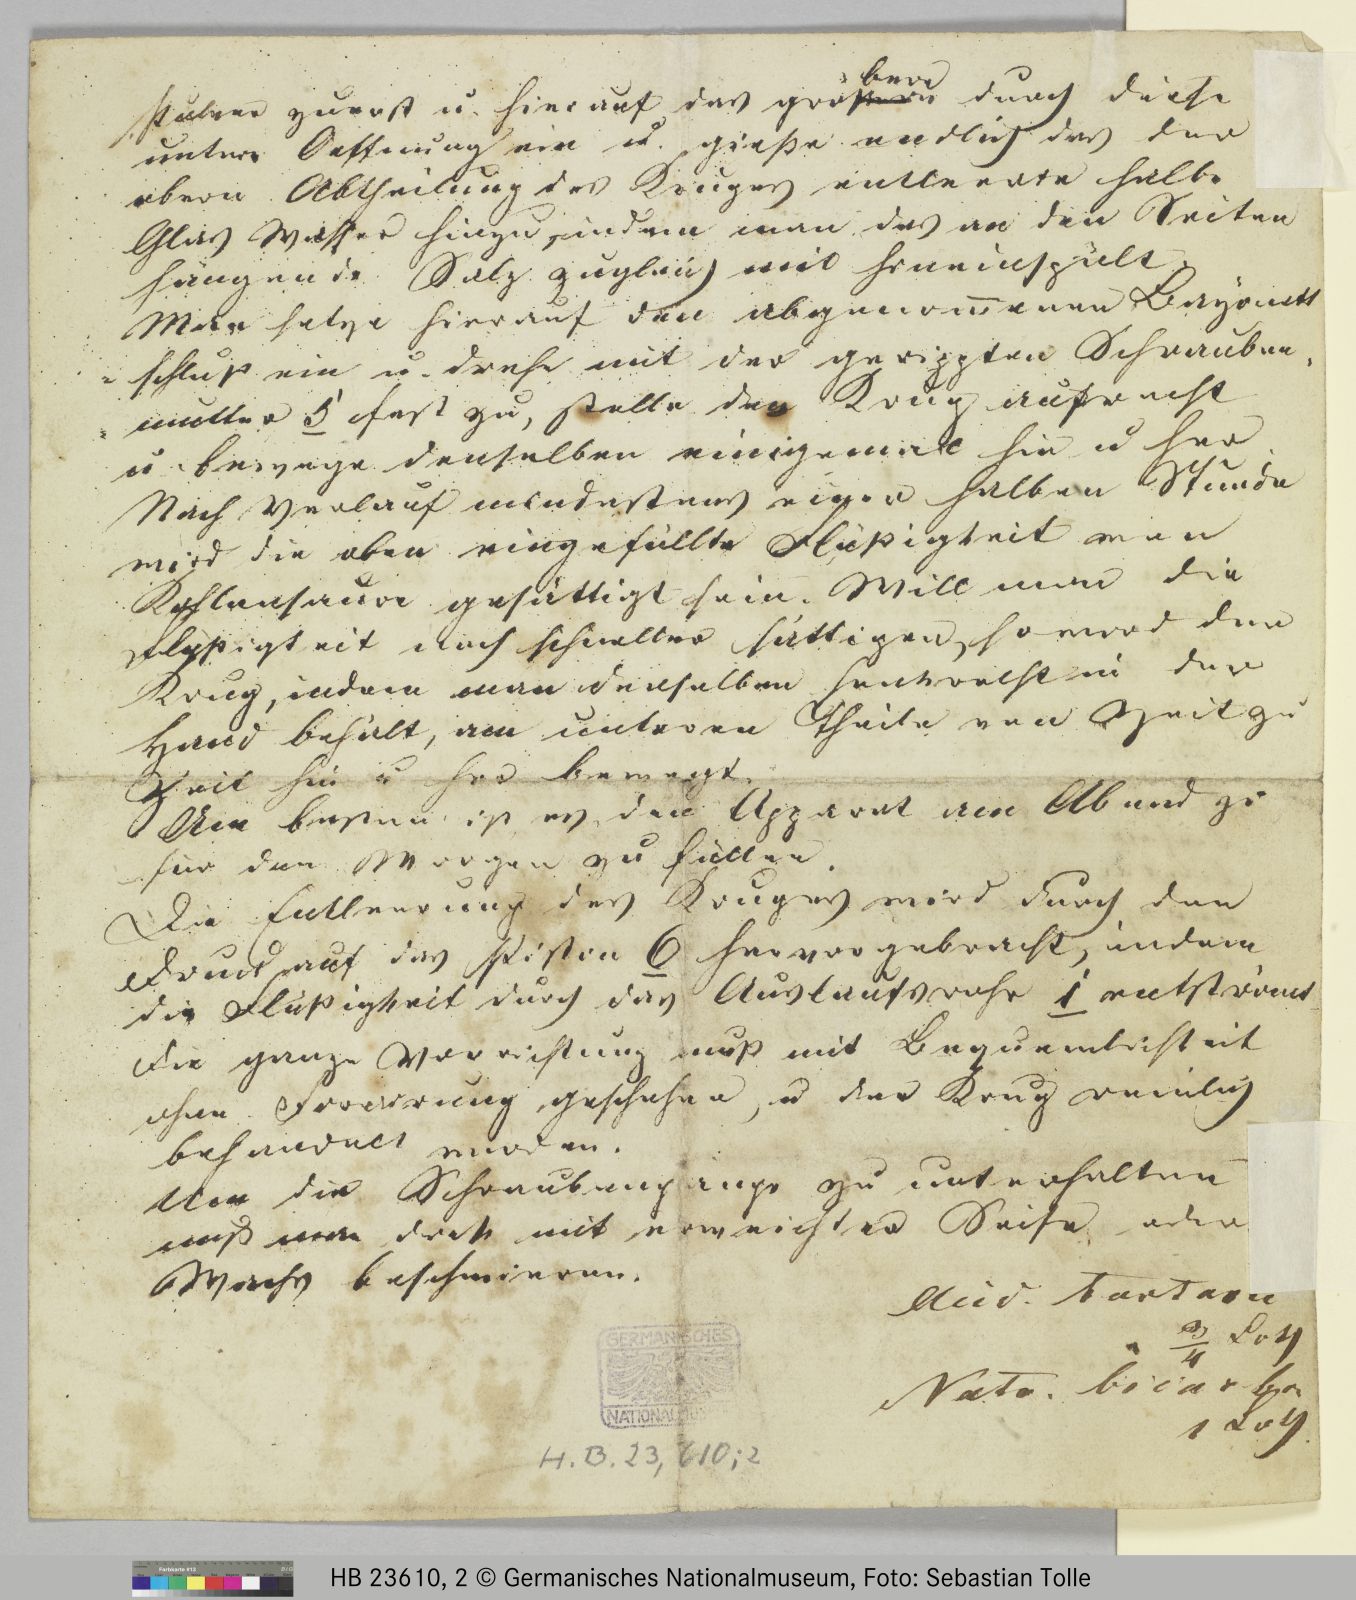 Pulver zuerst u. hierauf das gröbere durch diese
untere Oeffnung ein u. gieße endlich das der
obern Abtheilung des Kruges entleerte halbe
Glas Wasser hinzu, indem man das an den Seiten
hängende Salz zugleich mit hineinspült.
Man setze hierauf den abgenom̅enen Bayonett
schluß ein u. drehe mit der gerippten Schrauben
mutter 5 fest zu, stelle den Krug aufrecht
u. bewege denselben einigemal hin u her.
Nach Verlauf mindestens einer halben Stunde
wird die oben eingefüllte Flüßigkeit von
Kohlensaure gesättigt sein. Will man die
Flüßigkeit noch schneller sättigen, so wird der
Krug, indem man denselben senkrecht in der
Hand behält, am unteren Theile von Zeit zu
Zeit hin u her bewegt.
Am besten ist es den Apparat am Abend
für den Morgen zu füllen.
Die Entleerung des Kruges wird durch den
Druck auf das Piston 6 hervorgebracht, indem
die Flüßigkeit durch das Auslaufsrohr 1 entströmt
Die ganze Vorrichtung muß mit Bequemlichkeit
ohne Forcirung geschehen, u der Krug reinlich
behandelt werden.
Um die Schraubengänge zu unterhalten
muß man dieß mit erweichter Seife oder
Wachs beschmieren.
Acid. tartaru
3/4 Loth
Natr. bicarbon
1 Loth
GERMANISCHES
NATIONALMUSEUM
H.B. 23,610;2
Farbkarte #13
HB 23610, 2 © Germanisches Nationalmuseum, Foto: Sebastian Tolle